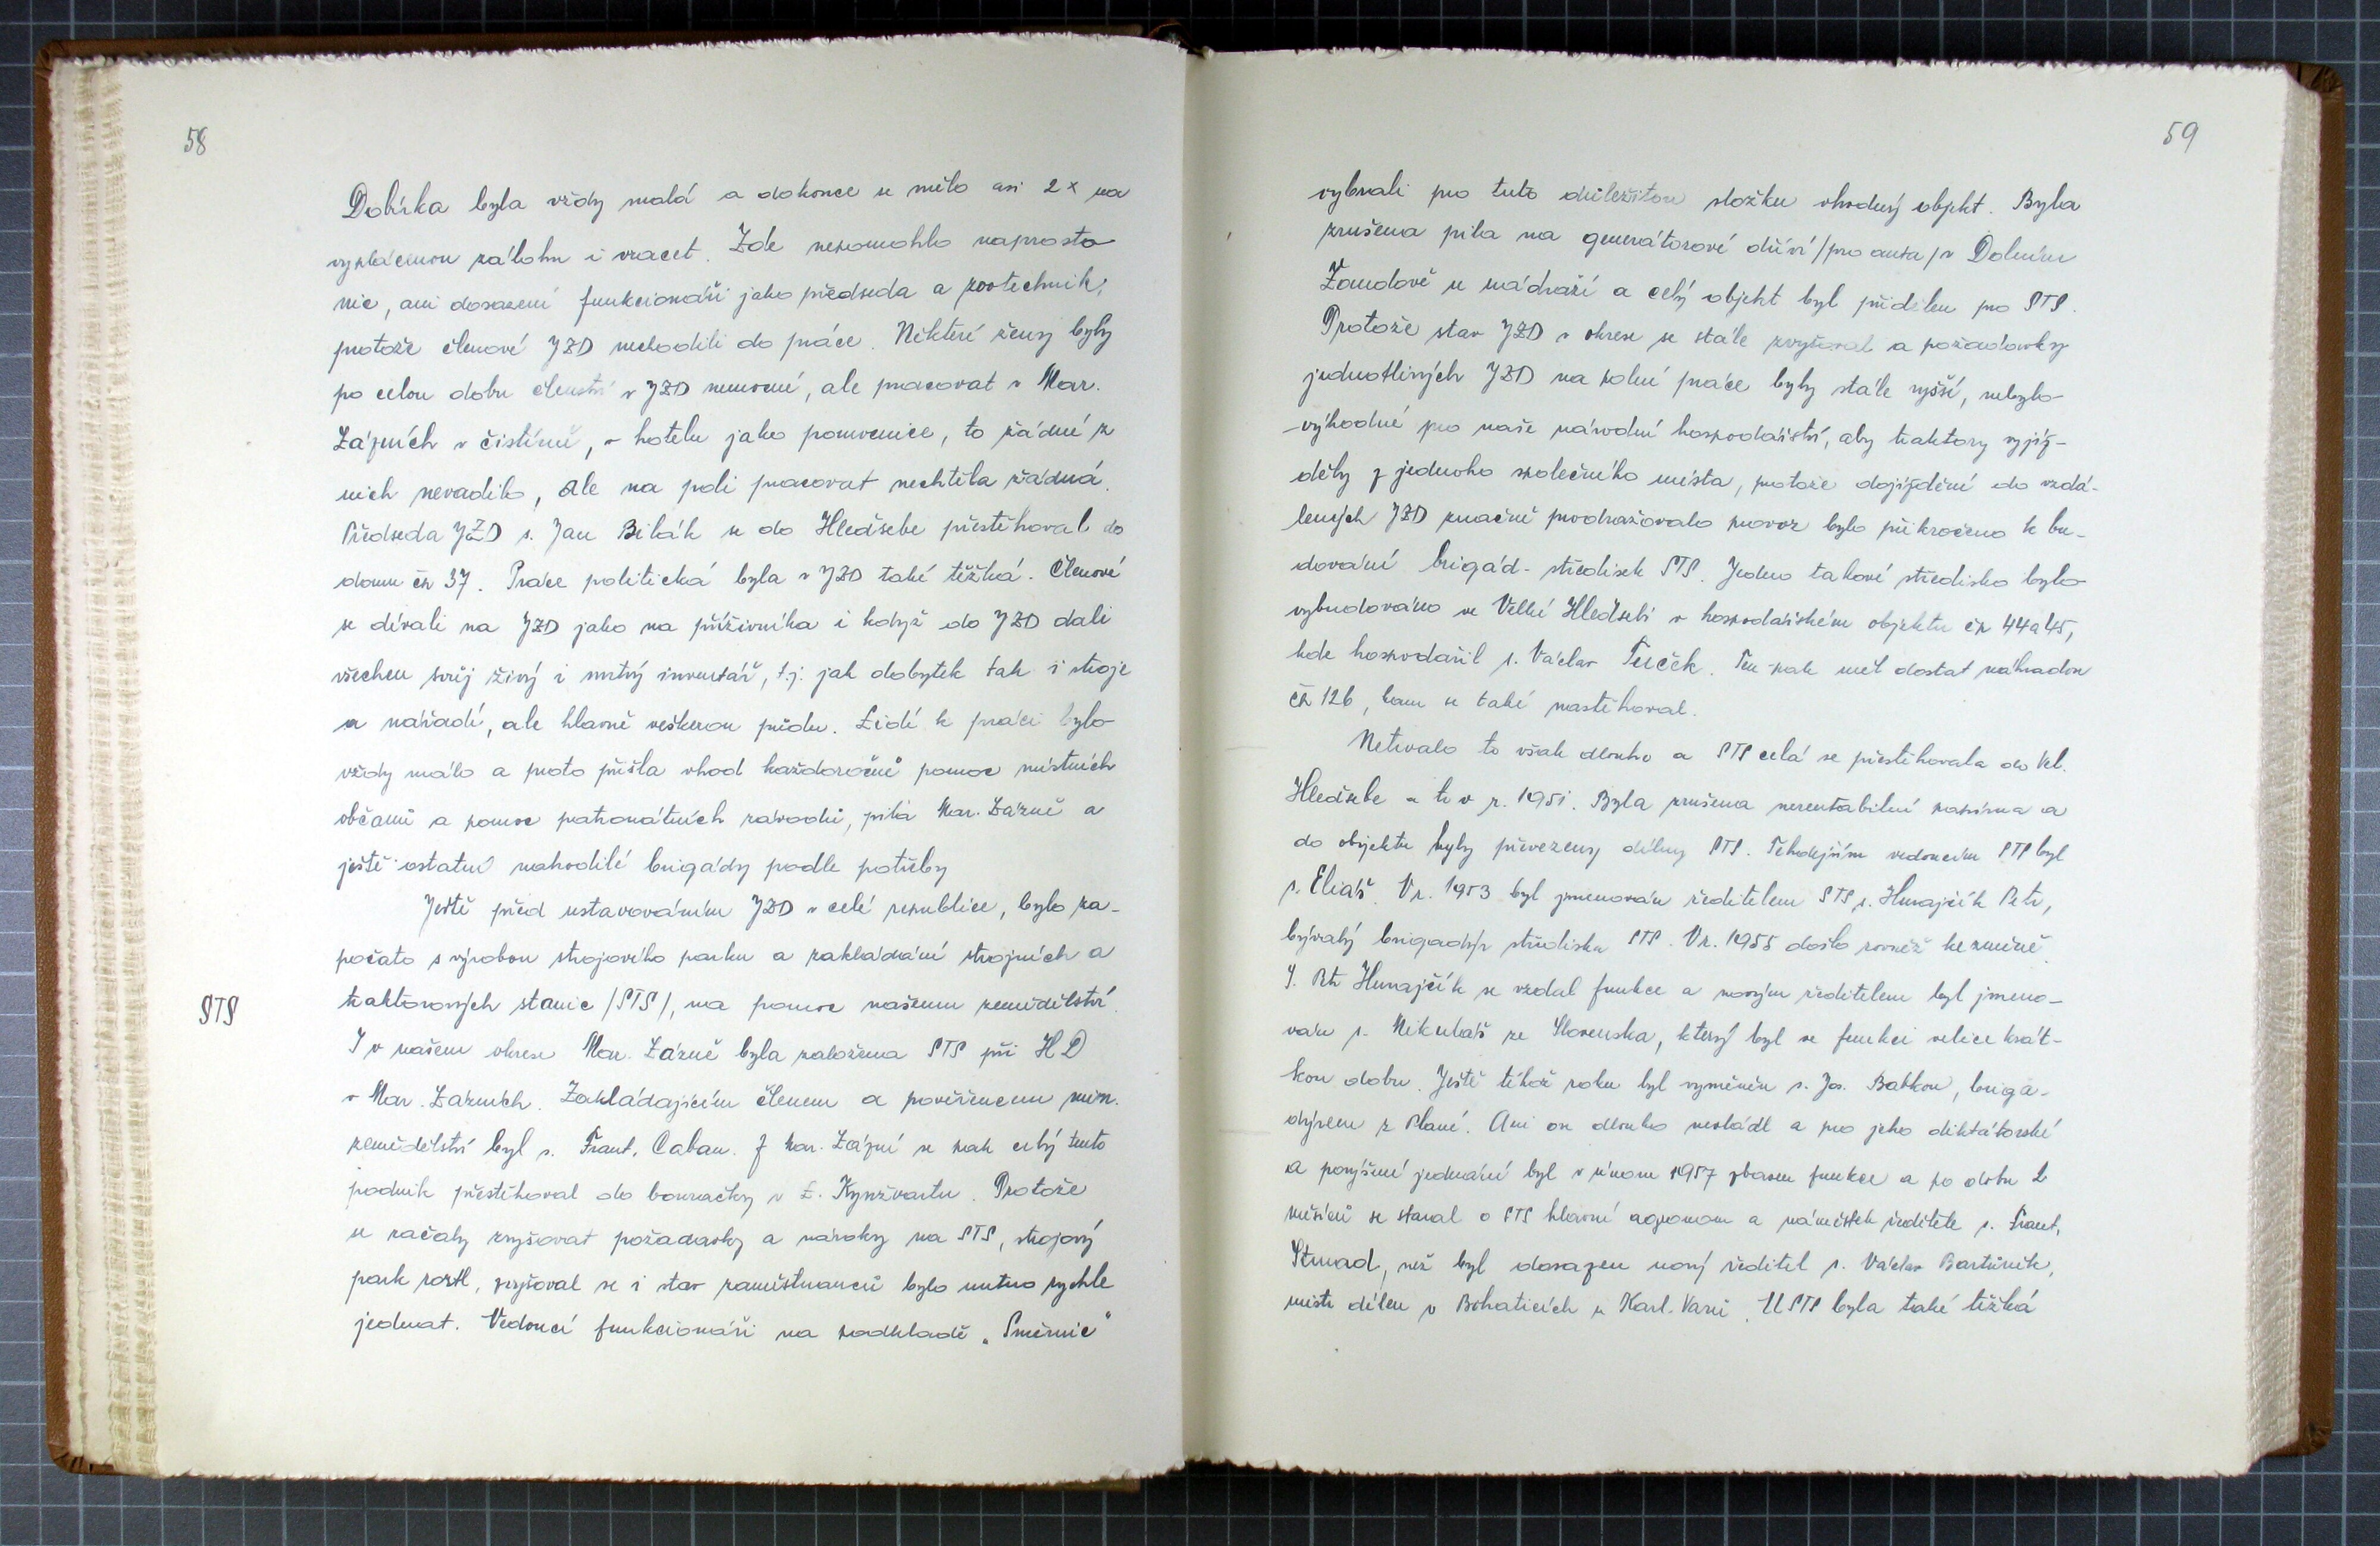 58
Dobírka byla vždy malá a dokonce se mělo asi 2x na
vyplácenou zálohu i vracet. Zde nepomohlo naprosto
nic, ani dosazení funkcionáři jako předseda a zootechnik,
protože členové JZD nechodili do práce. Některé ženy byly
po celou dobu členství v JZD nemocné, ale pracovat v Mar.
Lázních v čistírně, v hotelu jako pomocnice, to žádné z
nich nevadilo, ale na poli pracovat nechtěla žádná.
Předseda JZD s. Jan Bilák se do Hleďsebe přestěhoval do
domu čp 37. Práce politická byla v JZD také těžká. Členové
se dívali na JZD jako na příživníka i když do JZD dali
všechen svůj živý i mrtvý inventář, t.j. jak dobytek tak i stroje
a nářadí, ale hlavně veškerou půdu. Lidí k práci bylo
vždy málo a proto přišla vhod každoročně pomoc místních
občanů a pomoc patronátních závodů, pila Mar. Lázně a
ještě ostatní nahodilé brigády podle potřeby
Ještě před ustavováním JZD v celé republice, bylo za-
počato s výrobou strojového parku a zakládání strojních a
STS
traktorových stanic /STS/, na pomoc našemu zemědělství.
I v našem okrese Mar. Lázně byla založena STS při HD
v Mar. Lázních. Zakládajícím členem a pověřencem min.
zemědělství byl s. Frant. Caban. Z Mar. Lázní se pak celý tento
podnik přestěhoval do bouračky v L. Kynžvartu. Protože
se začaly zvyšovat požadavky a nároky na STS, strojový
park rostl, zvyšoval se i stav zaměstnanců bylo nutno rychle
jednat. Vedoucí funkcionáři na podkladě „Směrnic“
59
vybrali pro tuto důležitou složku vhodný objekt. Byla
zrušena pila na generátorové dříví /pro auta/ v Dolním
Žandově u nádraží a celý objekt byl přidělen pro STS.
Protože stav JZD v okrese se stále zvyšoval a požadavky
jednotlivých JZD na polní práce byly stále vyšší, nebylo
výhodné pro naše národní hospodářství, aby traktory vyjíž-
děly z jednoho společného místa, protože dojíždění do vzdá-
lených JZD značně prodražovalo provoz bylo přikročeno k bu-
dování brigád-středisek STS. Jedno takové středisko bylo
vybudováno ve Velké Hleďsebi v hospodářském objektu čp 44 a 45,
kde hospodařil s. Václav Tuček. Ten pak měl dostat náhradou
čp 126, kam se také nastěhoval.
Netrvalo to však dlouho a STS celá se přestěhovala do Vel.
Hleďsebe a to v r. 1951. Byla zrušena nerentabilní papírna a
do objektu byly převezeny dílny STS. Tehdejším vedoucím STS byl
s. Eliáš. V r. 1953 byl jmenován ředitelem STS s. Hunajčík Petr,
bývalý brigadýr střediska STS. V r. 1955 došlo rovněž ke změně.
S. Petr Hunajčík se vzdal funkce a novým ředitelem byl jmeno-
ván s. Mikuláš ze Slovenska, který byl ve funkci velice krát-
kou dobu. Ještě téhož roku byl vyměněn s. Jos. Babkou, briga-
dýrem z Plané. Ani on dlouho nevládl a pro jeho diktátorské
a povýšené jednání byl v únoru 1957 zbaven funkce a po dobu 2
měsíců se staral o STS hlavní agronom a náměstek ředitele s. Frant.
Strnad, než byl dosazen nový ředitel s. Václav Bartůněk,
mistr dílen v Bohaticích u Karl. Varů. U STS byla také těžká